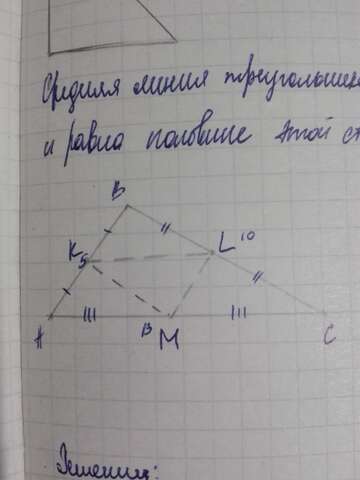 Средняя линия треугольника
и равна половине этой ст
B
K 5
L 10
A
III
13 M
III
C
Решение: